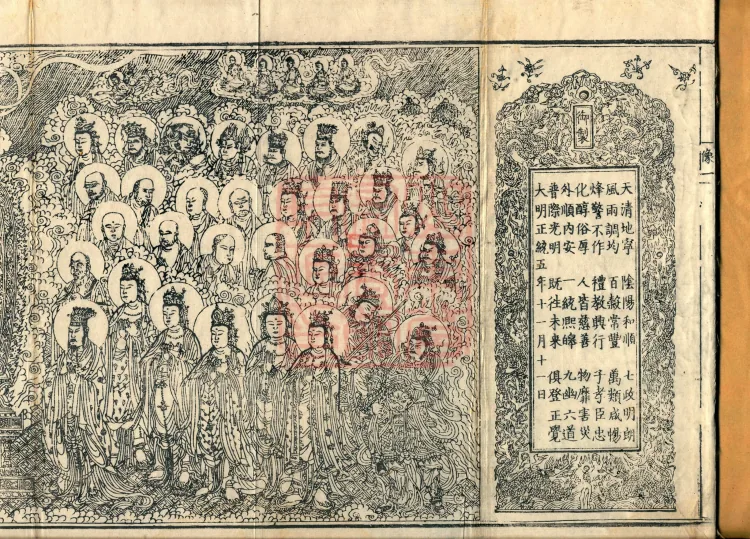 御製
天清地寧 陰陽和順 七政明朗
風雨調均 百穀常豐 萬類咸暢
烽警不作 禮教興行 子孝臣忠
化醇俗厚 人皆慈善 物靡害災
外順內安 一統熙皞 九幽六道
普際光明 既往未來 俱登正覺
大明正統五年十一月十一日
像一